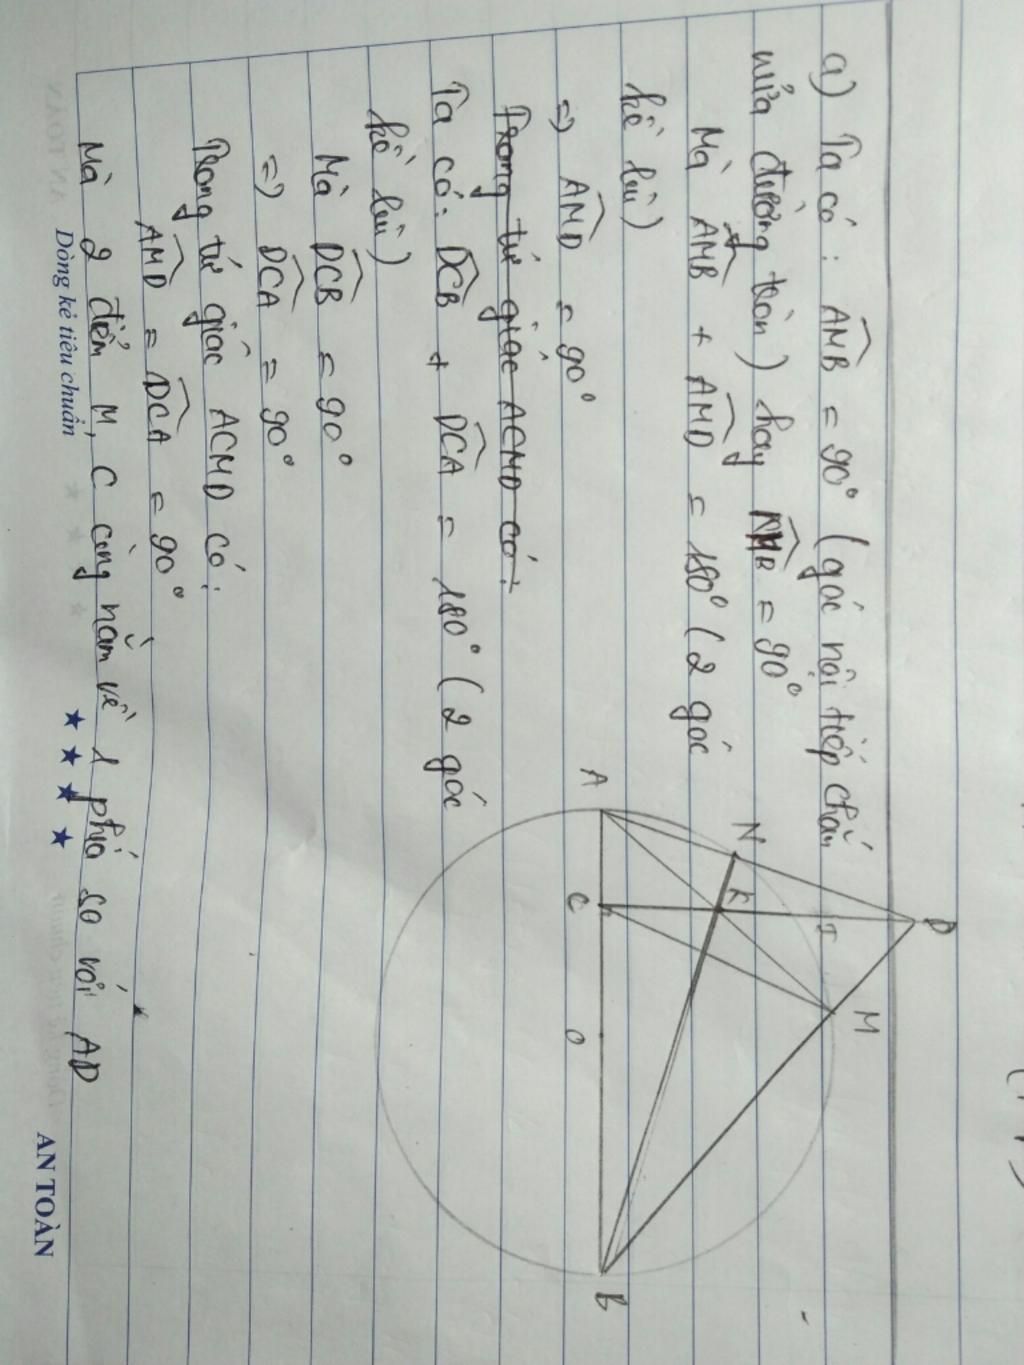 a) Ta có: AMB = 90° (góc nội tiếp chắn
nửa đường tròn) hay NMB = 90°
Mà AMB + AMD = 180° (2 góc
kề bù)
=> AMD = 90°
Trong tứ giác ACMD có:
Ta có: DCB + DCA = 180° (2 góc
kề bù)
Mà DCB = 90°
=> DCA = 90°
Trong tứ giác ACMD có:
AMD = DCA = 90°
Mà 2 điểm M, C cùng nằm về 1 phía so với AD
A
N
K
C
I
D
M
O
B
Dòng kẻ tiêu chuẩn
AN TOÀN